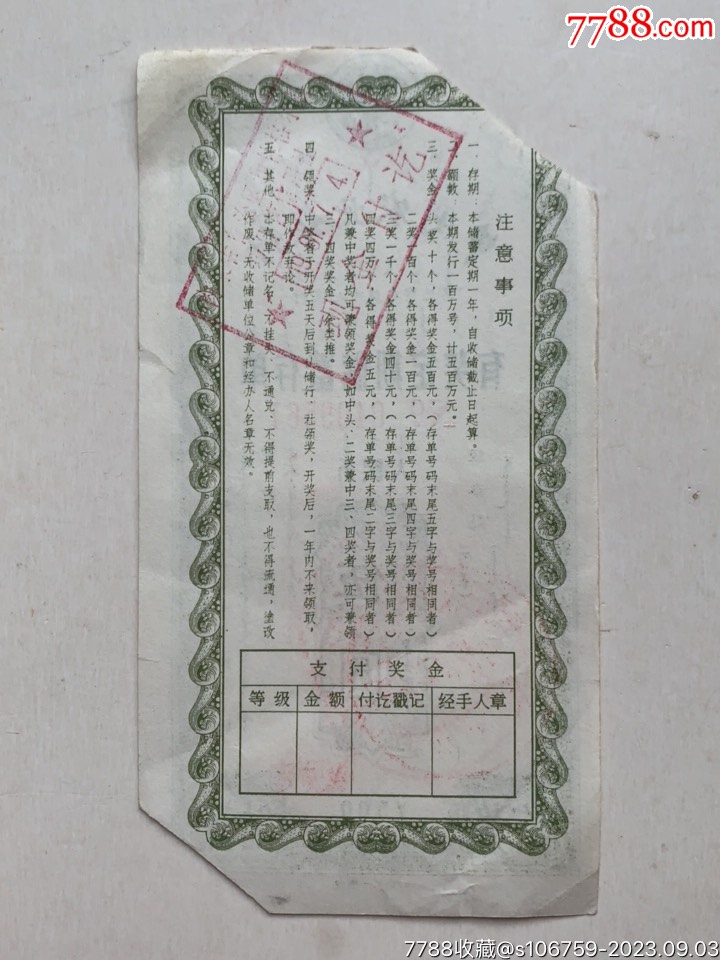 7788.com
注意事项
一、存期：本储蓄定期一年，自收储截止日起算。
二、额款：本期发行一百万号，计五百万元。
三、奖金：头奖十个，各得奖金五百元，（存单号码末尾五字与奖号相同者）
二奖一百个，各得奖金一百元，（存单号码末尾四字与奖号相同者）
三奖一千个，各得奖金四十元，（存单号码末尾三字与奖号相同者）
四奖四万个，各得奖金五元，（存单号码末尾二字与奖号相同者）
凡兼中奖者均可兼领奖金，如中头、二奖兼中三、四奖者，亦可兼领
三、四奖奖金，余类推。
四、领奖：中奖者于开奖五天后到收储行、社领奖，开奖后，一年内不来领取，
即作放弃论。
五、其他：本存单不记名，不挂失、不通兑、不得提前支取，也不得流通，涂改
作废，无收储单位公章和经办人名章无效。
付讫
支付奖金
等级 金额 付讫戳记 经手人章
7788收藏@s106759-2023.09.03